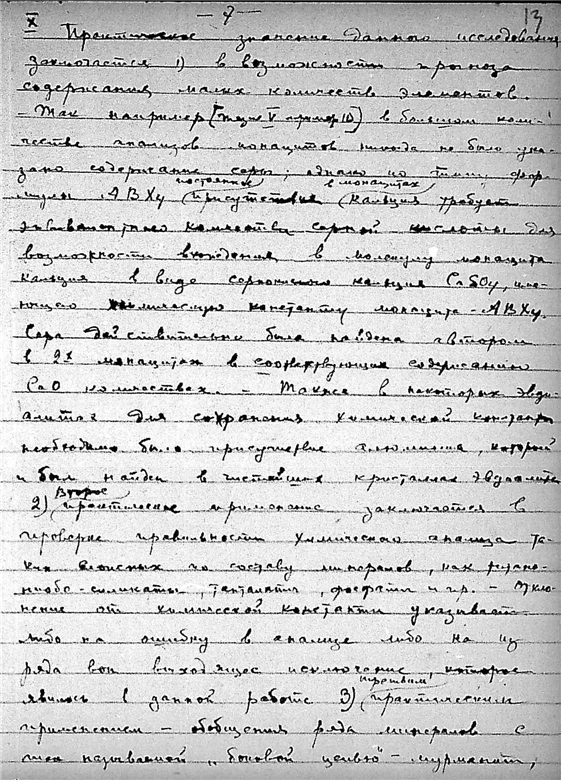 — 7 —
13
X Практическое значение данного исследования
заключается 1) в возможности прогноза
содержания малых количеств элементов.
– Так например [тезис V пример 10] в большом коли-
честве анализов монацитов никогда не было ука-
зано содержание серы; однако по типу фор-
мулы ABX4 постоянное присутствие в монацитах кальция требует
эквивалентного количества серной кислоты для
возможности вхождения в молекулу монацита
кальция в виде сернокислого кальция CaSO4, име-
ющего химическую константу монацита – ABX4.
Сера действительно была найдена автором
в 2х монацитах в соответствующих содержанию
CaO количествах. – Также в некоторых эвди-
алитах для сохранения химической константы
необходимо было присутствие алюминия, который
и был найден в чистейших кристаллах эвдиалита
2) Второе практическое применение заключается в
проверке правильности химического анализа та-
ких сложных по составу минералов, как титано-
ниобо-силикаты, танталаты, фосфаты и пр. – Откло-
нение от химической константы указывает
либо на ошибку в анализе либо на из
ряда вон выходящее исключение которое
явилось в данной работе 3) третьим практическим
применением – обобщения ряда минералов с
так называемой „боковой цепью" – мурманит,